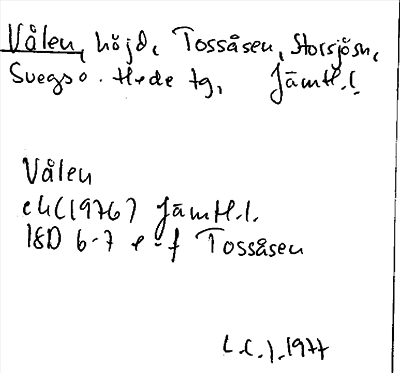 Vålen, höjd, Tossåsen, Storsjösn,
Svegs o. Hede tg, Jämtl.l.
Vålen
ek(1976) Jämtl.l.
18D 6-7 e-f Tossåsen
L.C.J. 1977